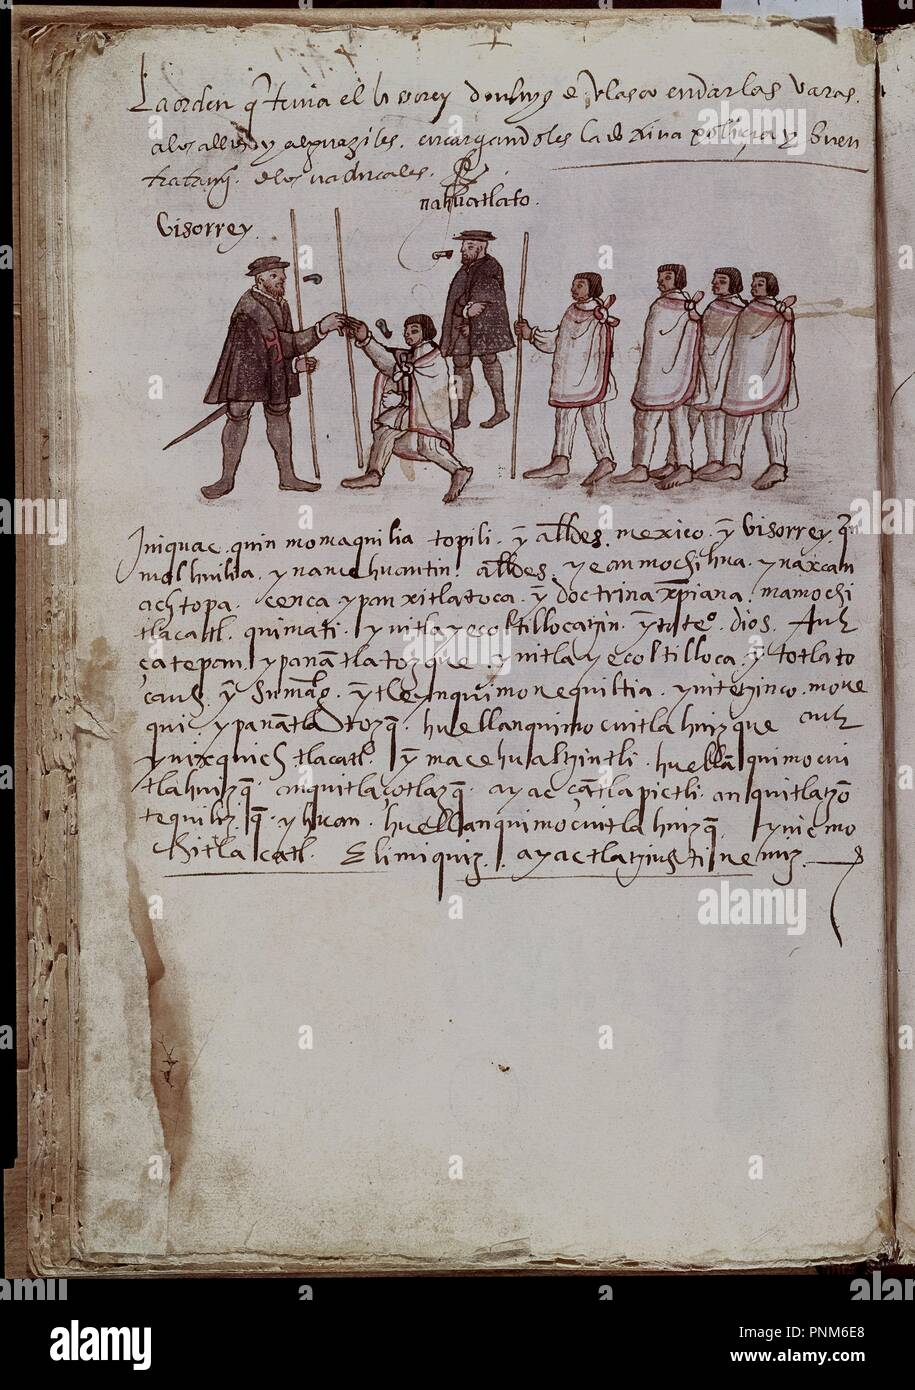 La orden q̄ tenia el bisorrey don luys de Velasco en dar las varas.
a los alldes y alguaziles. encargandoles la doctrina policia y buen
tratamy. de los naturales.
nahuatlato.
Visorrey.
Iniquac. quin momaquilia topili. yn allđes. mexico. yn Visorrey. qn
malhuilia. ynamehuantin. allđes. ye anmochihua. ynaxcan
achtopa. cenca ypan xitlatoca. yn doctrina xp̄iana. mamochi
tlacatl. quimati. ynitlayecoltillocatzin. yn toteº. dios. Auh
çatepan. ypan ātlatozque. ynitlayecoltilloca. yn totlato
cauh. yn Su mag. yn tleyn quimonequiltia. ynitetzinco. mone
qui. ypan ātlatozq̄. huellanquimocuitlahuizque auh
ynixquich tlacatl. yn macehualtzintli. huellā quimocui
tlahuizq̄. anquitlaçotlazq̄. ayac çātlapictli. anquitlatzō
tequilizq̄. yhuan. huellanquimocuitlahuizq̄. ynic mo
chitlacatl. Elimiquiz. ayac tlatziuhtinemiz.
alamy
Image ID: PNM6E8
www.alamy.com